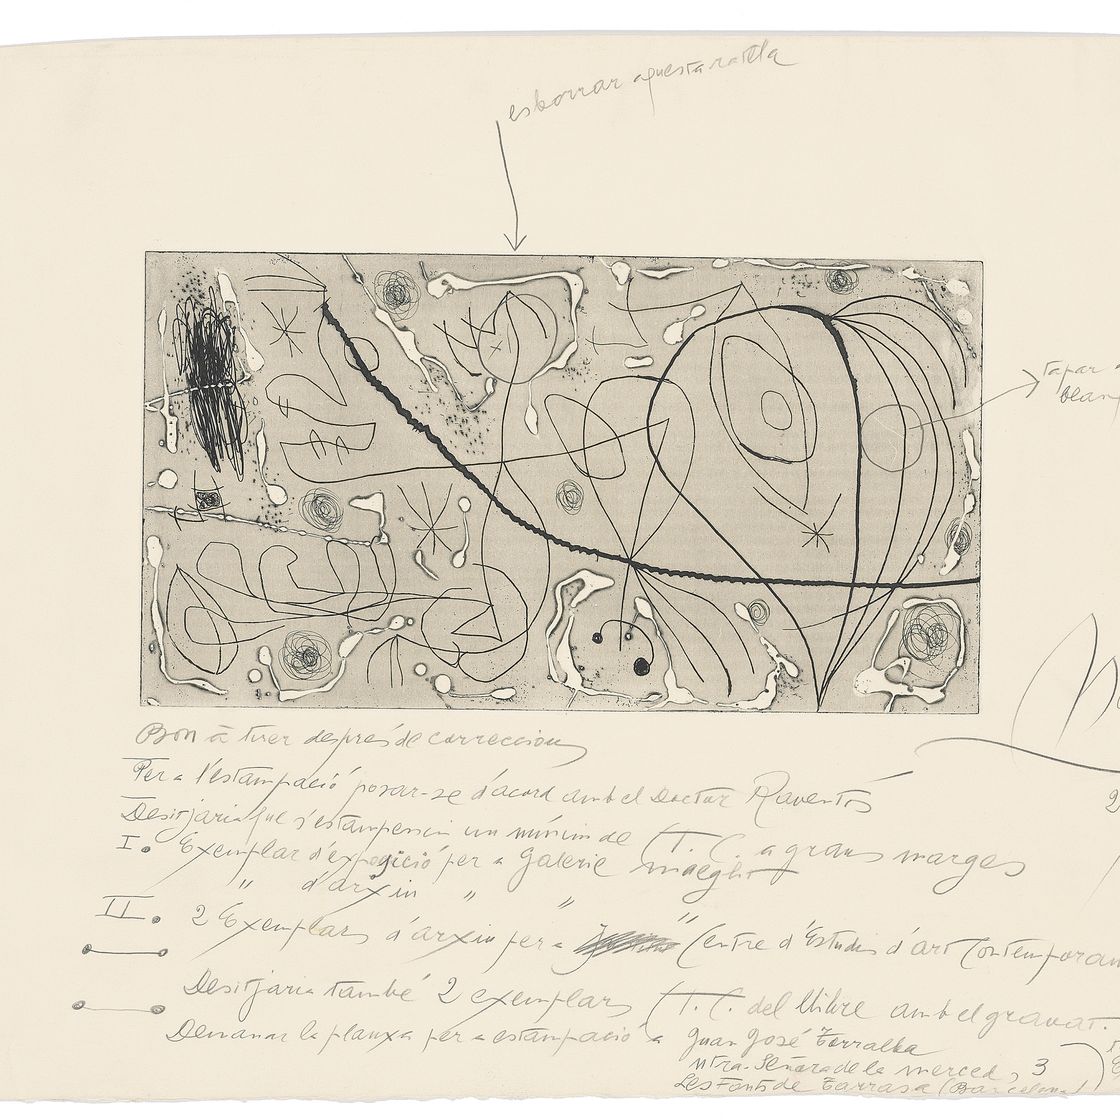 esborrar aquesta ratlla
tapar
blan
Bon à tirer després de correccions
Per a l'estampació posar-se d'acord amb el Doctor Raventós
Desitjaria que s'estampessin un mínim de H. C. a grans marges
I. Exemplar d'exposició per a Galerie Maeght
" d'arxiu " "
II. 2 Exemplars d'arxiu per a Centre d'Estudis d'art Contemporan
Desitjaria també 2 exemplars H. C. del llibre amb el gravat.
Demanar la planxa per a estampació a Juan José Torralba
Ntra. Señora de la Merced, 3
Les Fonts de Tarrasa (Barcelona)